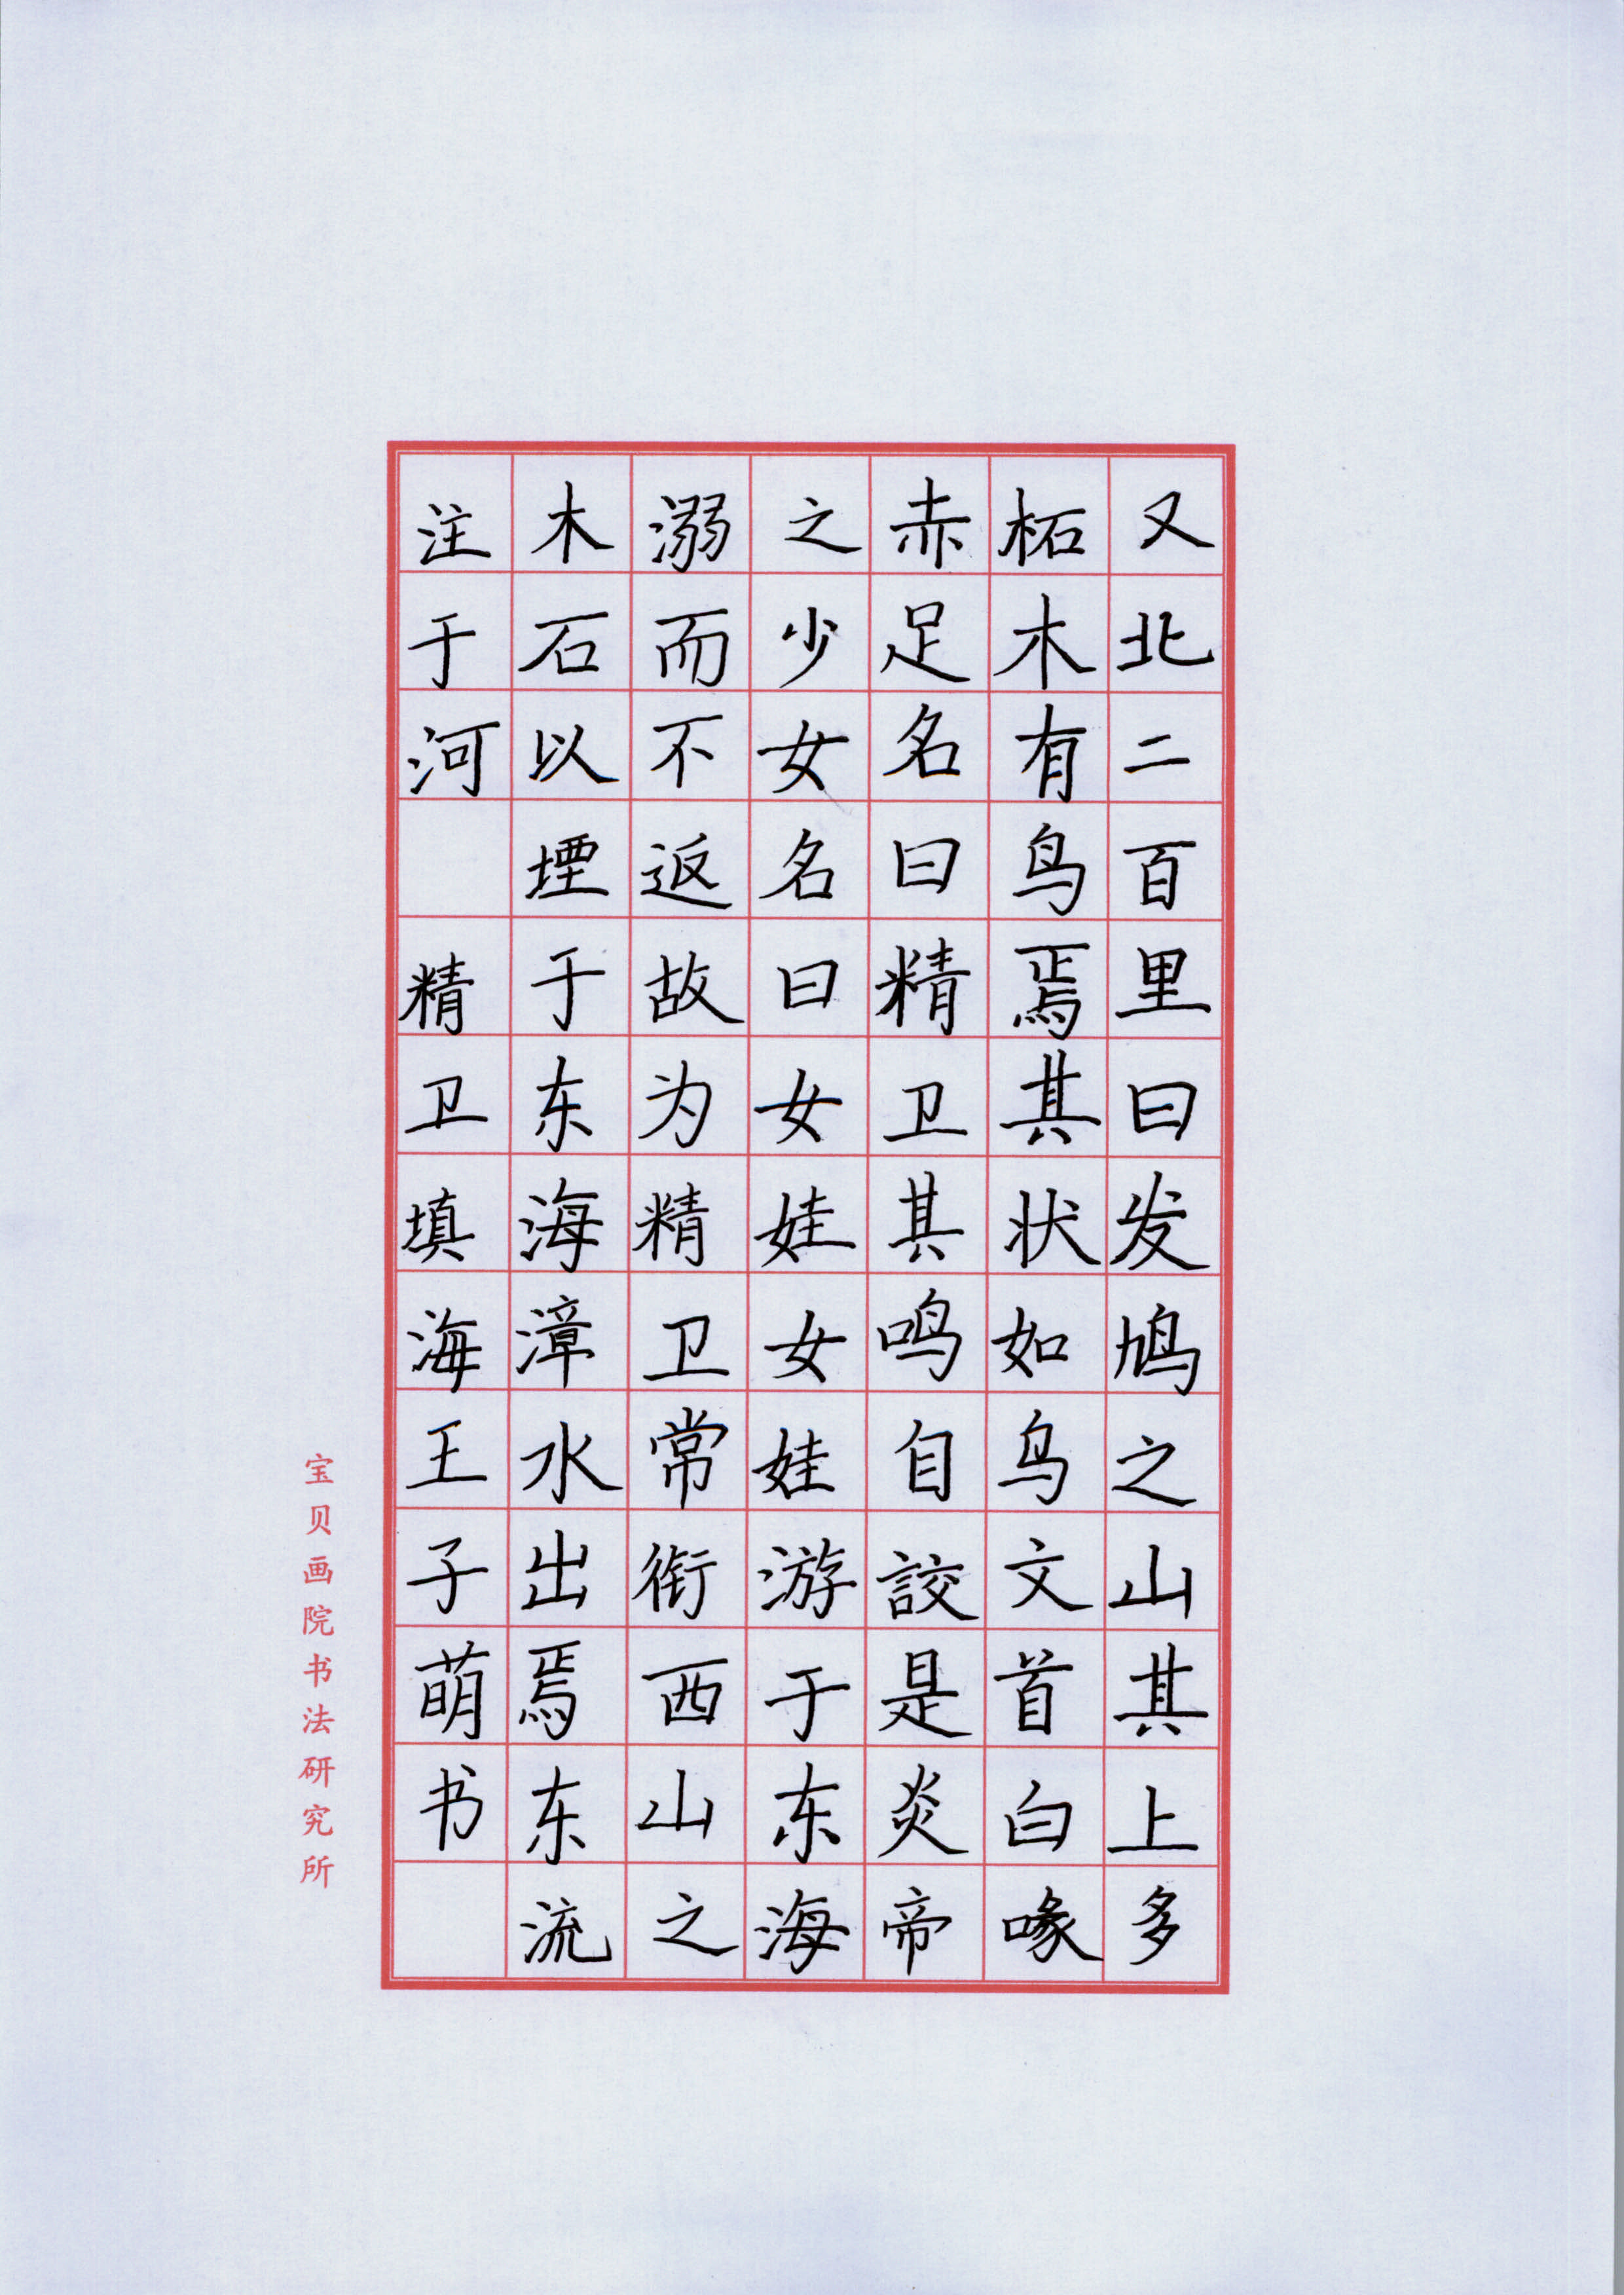 又北二百里曰发鸠之山其上多
柘木有鸟焉其状如乌文首白喙
赤足名曰精卫其鸣自詨是炎帝
之少女名曰女娃女娃游于东海
溺而不返故为精卫常衔西山之
木石以堙于东海漳水出焉东流
注于河 精卫填海王子萌书
宝贝画院书法研究所